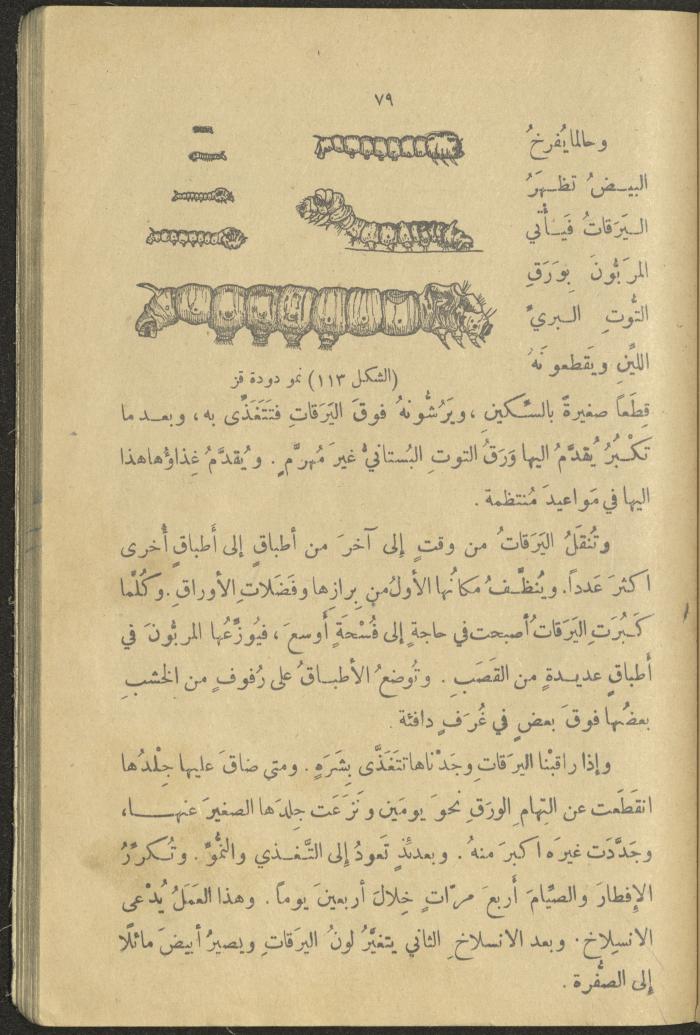 ٧٩
وحالما يُفرخُ
البيـضُ تظـهَرُ
الـيَرَقاتُ فَيَـأْتي
المرَبُّونَ بِورَقِ
التُّوتِ الـبريِّ
الليِّنِ ويَقطعونَهُ
(الشكل ١١٣) نمو دودة قز
قِطَعاً صغيرةً بالسِّكينِ ، ويَرُشُّونهُ فوقَ اليَرَقاتِ فتَتَغَذَّى به ، وبعـد ما
تكْـبُرُ يُقدَّمُ اليها وَرَقُ التوتِ البُستانيُّ غيرَ مُهرَّمٍ . ويُقدَّمُ غِذاؤُها هذا
اليها في مَواعيدَ مُنتظمة .
وتُنقَلُ اليَرَقاتُ من وقتٍ إلى آخرَ من أطباقٍ إلى أَطباقٍ أُخرى
اكثرَ عَدداً. ويُنظَّـفُ مكانُها الأولُ من بِرازِها وفَضَلاتِ الأوراقِ . وكُلَّما
كَـبُرَتِ اليَرَقاتُ أصبحت في حاجةٍ إلى فُسْحَةٍ أَوسعَ ، فيُوزِّعُها المربُّونَ في
أَطباقٍ عديـدةٍ من القَصَبِ . وتُوضعُ الأطبـاقُ على رُفوفٍ من الخشبِ
بعضُها فوقَ بعضٍ في غُرَفٍ دافئة .
وإذا راقبْنا اليرَقاتِ وجَدْناها تتغَذَّى بِشَرَهٍ . ومتى ضاقَ عليها جِلْدُها
انقَطَعت عن التِهامِ الورَقِ نحوَ يومَين ونَزَعَت جِلدَها الصغيرَ عنهـــا ،
وجَدَّدَت غيرَه اكبرَ منهُ . وبعدئذٍ تَعودُ إلى التَّغـذي والنُّموِّ . وتُـكرِّرُ
الإفطارَ والصِّيامَ أَربعَ مرّاتٍ خِلالَ أربعينَ يوماً . وهذا العَمَلُ يُدْعى
الانسِلاخ . وبعد الانسلاخِ الثاني يتغيَّرُ لونُ اليرَقاتِ ويصيرُ أبيضَ مائلًا
إلى الصُّفرة .